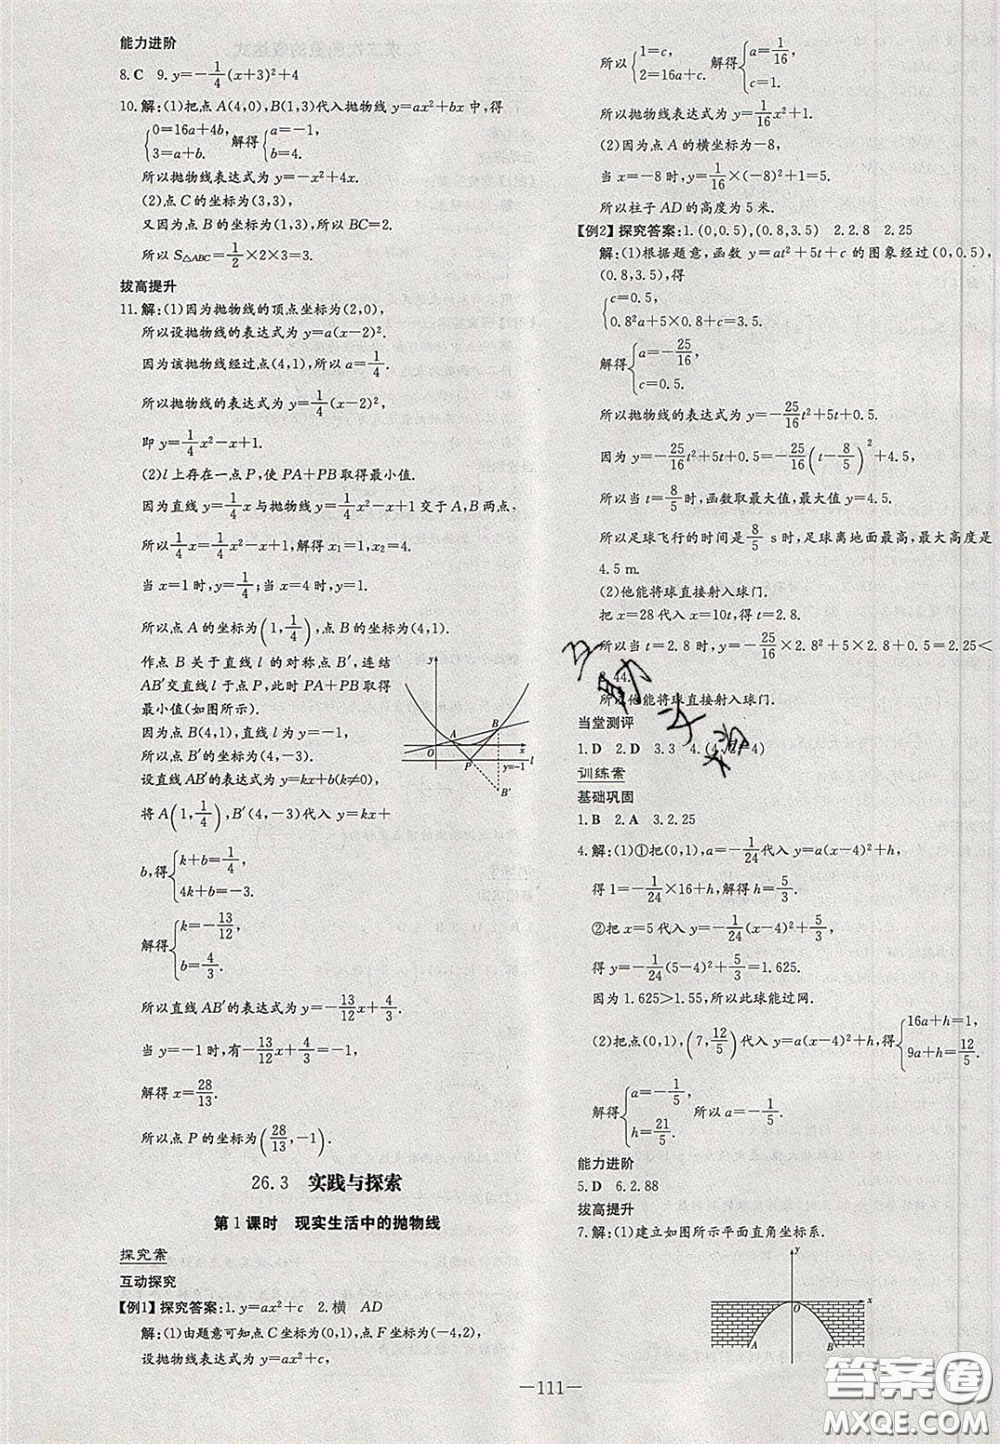 能力进阶
8.C 9.y=-1/4(x+3)²+4
10.解:(1)把点A(4,0),B(1,3)代入抛物线y=ax²+bx中,得
{0=16a+4b, 3=a+b. 解得{a=-1, b=4.
所以抛物线表达式为y=-x²+4x.
(2)点C的坐标为(3,3),
又因为点B的坐标为(1,3),所以BC=2.
所以S△ABC=1/2×2×3=3.
拔高提升
11.解:(1)因为抛物线的顶点坐标为(2,0),
所以设抛物线的表达式为y=a(x-2)².
因为该抛物线经过点(4,1),所以a=1/4.
所以抛物线的表达式为y=1/4(x-2)²,
即y=1/4x²-x+1.
(2)l上存在一点P,使PA+PB取得最小值.
因为直线y=1/4x与抛物线y=1/4x²-x+1交于A,B两点,
所以1/4x=1/4x²-x+1,解得x₁=1,x₂=4.
当x=1时,y=1/4;当x=4时,y=1.
所以点A的坐标为(1,1/4),点B的坐标为(4,1).
作点B关于直线l的对称点B′,连结
AB′交直线l于点P,此时PA+PB取得
最小值(如图所示).
因为点B(4,1),直线l为y=-1,
所以点B′的坐标为(4,-3).
设直线AB′的表达式为y=kx+b(k≠0),
将A(1,1/4),B′(4,-3)代入y=kx+
b,得{k+b=1/4, 4k+b=-3.
解得{k=-13/12, b=4/3.
所以直线AB′的表达式为y=-13/12x+4/3.
当y=-1时,有-13/12x+4/3=-1,
解得x=28/13.
所以点P的坐标为(28/13,-1).
y
A
B
O
x
P
y=-1
l
B′
26.3 实践与探索
第1课时 现实生活中的抛物线
探究案
互动探究
【例1】探究答案:1.y=ax²+c 2.横 AD
解:(1)由题意可知点C坐标为(0,1),点F坐标为(-4,2),
设抛物线表达式为y=ax²+c,
所以{1=c, 2=16a+c. 解得{a=1/16, c=1.
所以抛物线表达式为y=1/16x²+1.
(2)因为点A的横坐标为-8,
当x=-8时,y=1/16×(-8)²+1=5.
所以柱子AD的高度为5米.
【例2】探究答案:1.(0,0.5),(0.8,3.5) 2.2.8 2.25
解:(1)根据题意,函数y=at²+5t+c的图象经过(0,0.5),
(0.8,3.5),得
{c=0.5, 0.8²a+5×0.8+c=3.5.
解得{a=-25/16, c=0.5.
所以抛物线的表达式为y=-25/16t²+5t+0.5.
因为y=-25/16t²+5t+0.5=-25/16(t-8/5)²+4.5,
所以当t=8/5时,函数取最大值,最大值y=4.5.
所以足球飞行的时间是8/5 s时,足球离地面最高,最大高度是
4.5 m.
(2)他能将球直接射入球门.
把x=28代入x=10t,得t=2.8.
所以当t=2.8时,y=-25/16×2.8²+5×2.8+0.5=2.25<
44.
所以他能将球直接射入球门.
当堂测评
1.D 2.D 3.3
训练案
基础巩固
1.B 2.A 3.2.25
4.解:(1)①把(0,1),a=-1/24代入y=a(x-4)²+h,
得1=-1/24×16+h,解得h=5/3.
②把x=5代入y=-1/24(x-4)²+5/3,
得y=-1/24(5-4)²+5/3=1.625.
因为1.625>1.55,所以此球能过网.
(2)把点(0,1),(7,12/5)代入y=a(x-4)²+h,得{16a+h=1, 9a+h=12/5.
解得{a=-1/5, h=21/5. 所以a=-1/5.
能力进阶
5.D 6.2.88
拔高提升
7.解:(1)建立如图所示平面直角坐标系.
y
O
x
A
B
—111—
答案圈
MXQE.COM